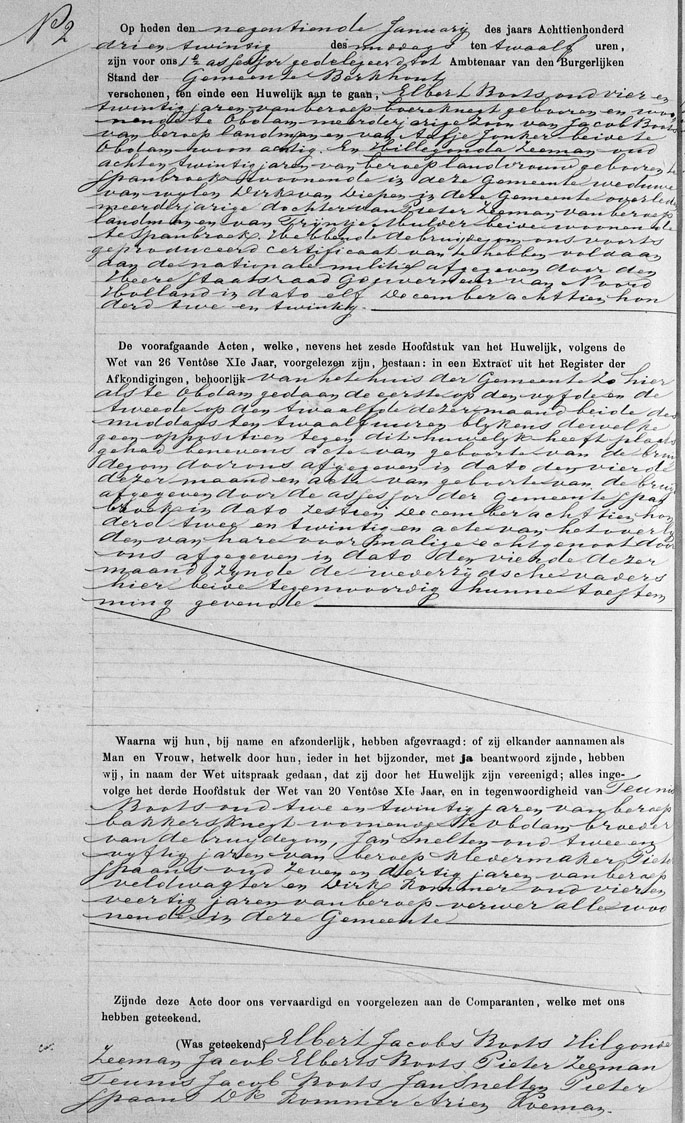 No 2
Op heden den negentiende Januarij des jaars Achttienhonderd
drie en twintig des middags ten twaalf uren,
zijn voor ons 1e assessor gedelegeerd tot Ambtenaar van den Burgerlijken
Stand der Gemeente Berkhout
verschenen, ten einde een Huwelijk aan te gaan, Elbert Boots oud vier en
twintig jaren van beroep boereknegt geboren en woo
nende te Obdam meerderjarige zoon van Jacob Boots
van beroep landman en van Aafje Jonker beide te
Obdam woonachtig. En Hillegonda Zeeman oud
acht en twintig jaren van beroep landvrouw geboren te
Spanbroek woonende in deze Gemeente weduwe
van wylen Dirk van Diepen in deze Gemeente overlede
meerderjarige dochter van Pieter Zeeman van beroep
landman en van Trijntje Mulder beide woonende
te Spanbroek. Hebbende de bruidegom ons voorts
geproduceerd certificaat van te hebben voldaan
aan de nationale militie afgegeven door den
Heere Staatsraad Gouverneur van Noord
Holland in dato elf December achttien hon
derd twe en twintig.
De voorafgaande Acten, welke, nevens het zesde Hoofdstuk van het Huwelijk, volgens de
Wet van 26 Ventôse XIe Jaar, voorgelezen zijn, bestaan: in een Extract uit het Register der
Afkondigingen, behoorlijk van het huis der Gemeente zo hier
als te Obdam gedaan de eerste op den vyfde en de
tweede op den twaalfde dezer maand beide des
middags ten twaalf uuren blykens dewelke
geen oppositien tegen dit huwelyk heeft plaats
gehad benevens acte van geboorte van de brui
degom door ons afgegeven in dato den vierde
dezer maand en acte van geboorte van de bruid
afgegeven door de assessor der Gemeente Span
broek in dato zestien December achttien hon
derd twee en twintig en acte van het overly
den van hare voormalige echtgenoot door
ons afgegeven in dato den vierde dezer
maand zynde de wederzydsche vaders
hier beide tegenwoordig hunne toestem
ming gevende
Waarna wij hun, bij name en afzonderlijk, hebben afgevraagd: of zij elkander aannamen als
Man en Vrouw, hetwelk door hun, ieder in het bijzonder, met ja beantwoord zijnde, hebben
wij, in naam der Wet uitspraak gedaan, dat zij door het Huwelijk zijn vereenigd; alles inge-
volge het derde Hoofdstuk der Wet van 20 Ventôse XIe Jaar, en in tegenwoordigheid van Teunis
Boots oud twe en twintig jaren van beroep
bakkersknegt woonende te Obdam broeder
van de bruydegom, Jan Snelten oud twee en
vyftig jaren van beroep kledermaker, Pieter
Spaans oud zeven en dertig jaren van beroep
veldwagter en Dirk Kommer oud vier en
veertig jaren van beroep verwer alle woo
nende in deze Gemeente
Zijnde deze Acte door ons vervaardigd en voorgelezen aan de Comparanten, welke met ons
hebben geteekend.
(Was geteekend) Elbert Jacobs Boots Hilgonda
Zeeman Jacob Elberts Boots Pieter Zeeman
Teunis Jacob Boots Jan Snelten Pieter
Spaans Dk Kommer Arien Koeman.